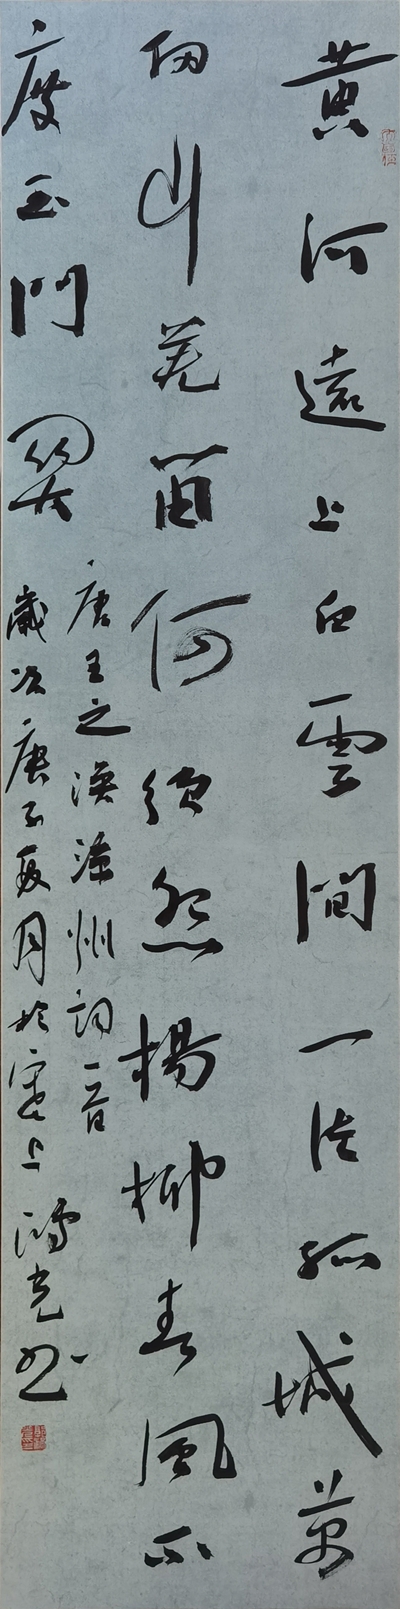 黄河遠上白雲間一片孤城萬
仞山羌笛何須怨楊柳春風不
度玉門関
唐王之渙涼州詞一首
歲次庚子夏月於塞上鴻光书